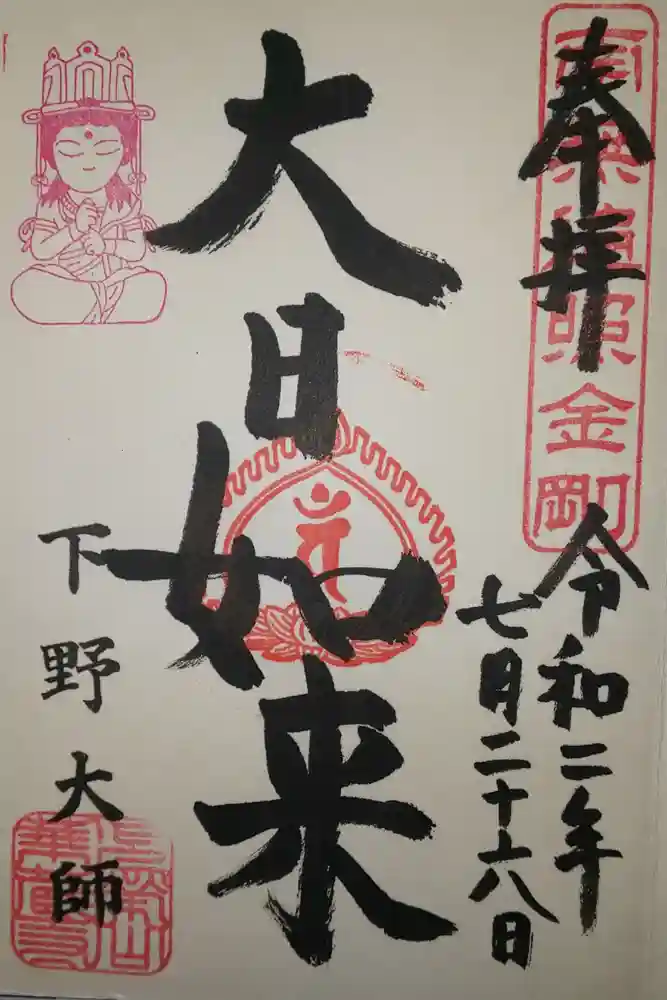 奉拝
南無遍照金剛
令和二年
七月二十六日
大日如来
下野大師